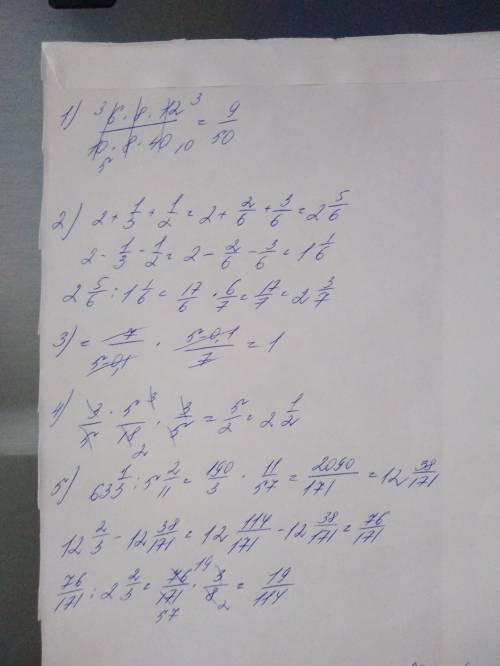 1) ³ 6 · 8 · 12 ³ / 10 · 8 · 40 = 9/50
5 10
2) 2 + 1/3 + 1/2 = 2 + 2/6 + 3/6 = 2 5/6
2 - 1/3 - 1/2 = 2 - 2/6 - 3/6 = 1 1/6
2 5/6 : 1 1/6 = 17/6 · 6/7 = 17/7 = 2 3/7
3) = 7/(5-0,1) · (5-0,1)/7 = 1
4) = 5/2 = 2 1/2
5) 63 1/3 : 5 2/11 = 190/3 · 11/57 = 2090/171 = 12 38/171
12 2/3 - 12 38/171 = 12 114/171 - 12 38/171 = 76/171
76/171 : 2 2/3 = 76/171 · 3/8 = 19/114
19
57 2